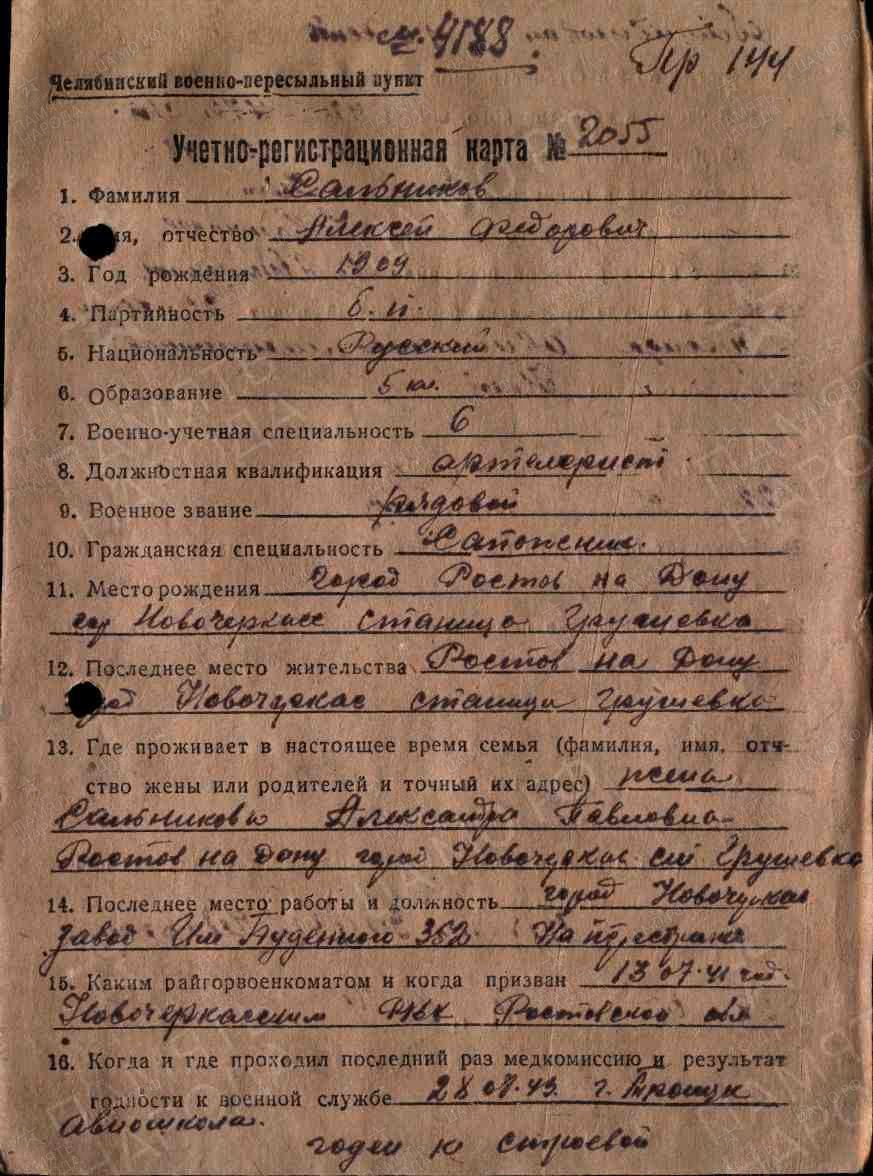 м. 4188
Пр 144
Челябинский военно-пересыльный пункт
Учетно-регистрационная карта № 2055
1. Фамилия Сальников
2. мя, отчество Алексей Федорович
3. Год рождения 1909
4. Партийность б. п.
5. Национальность Русский
6. Образование 5 кл.
7. Военно-учетная специальность 6
8. Должностная квалификация артелерист
9. Военное звание рядовой
10. Гражданская специальность Сапожник.
11. Место рождения Город Ростов на Дону
гор Новочеркасс станица Грушевка
12. Последнее место жительства Ростов на Дону
Новочеркас станица Грушевка
13. Где проживает в настоящее время семья (фамилия, имя, отч-
ство жены или родителей и точный их адрес) жена
Сальникова Александра Павловна
Ростов на Дону город Новочеркас ст Грушевка
14. Последнее место работы и должность город Новочеркас
завод Им Буденного 352
15. Каким райгорвоенкоматом и когда призван 13 07.41 год.
Новочеркасским РВК Ростовской обл
16. Когда и где проходил последний раз медкомиссию и результат
годности к военной службе 28 07.43. г. Троицк
Авиошкола.
годен к строевой